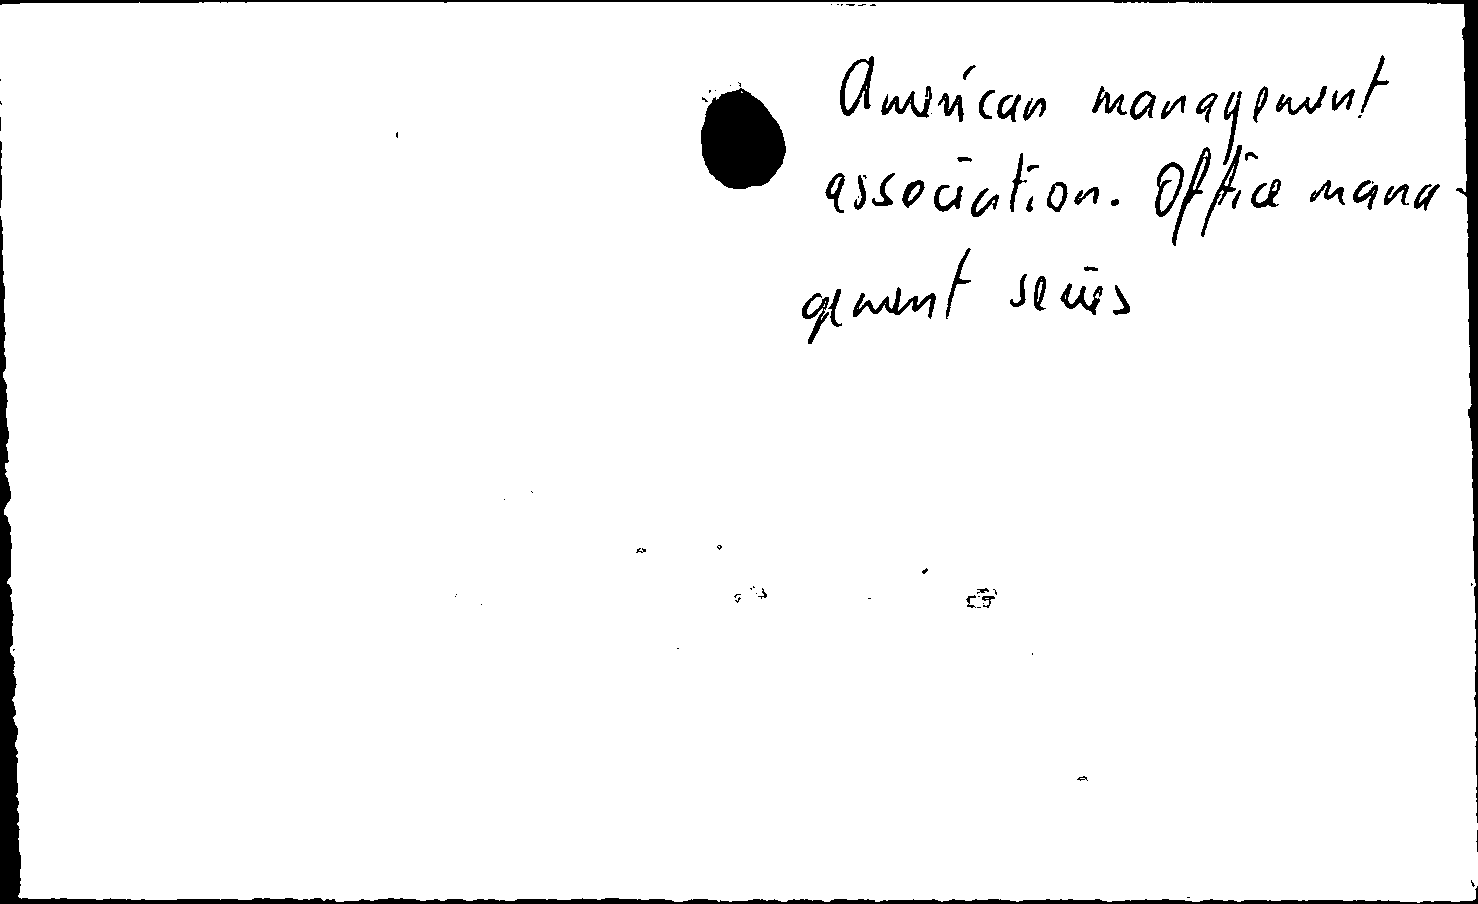 American management
association. Office mana-
gement series